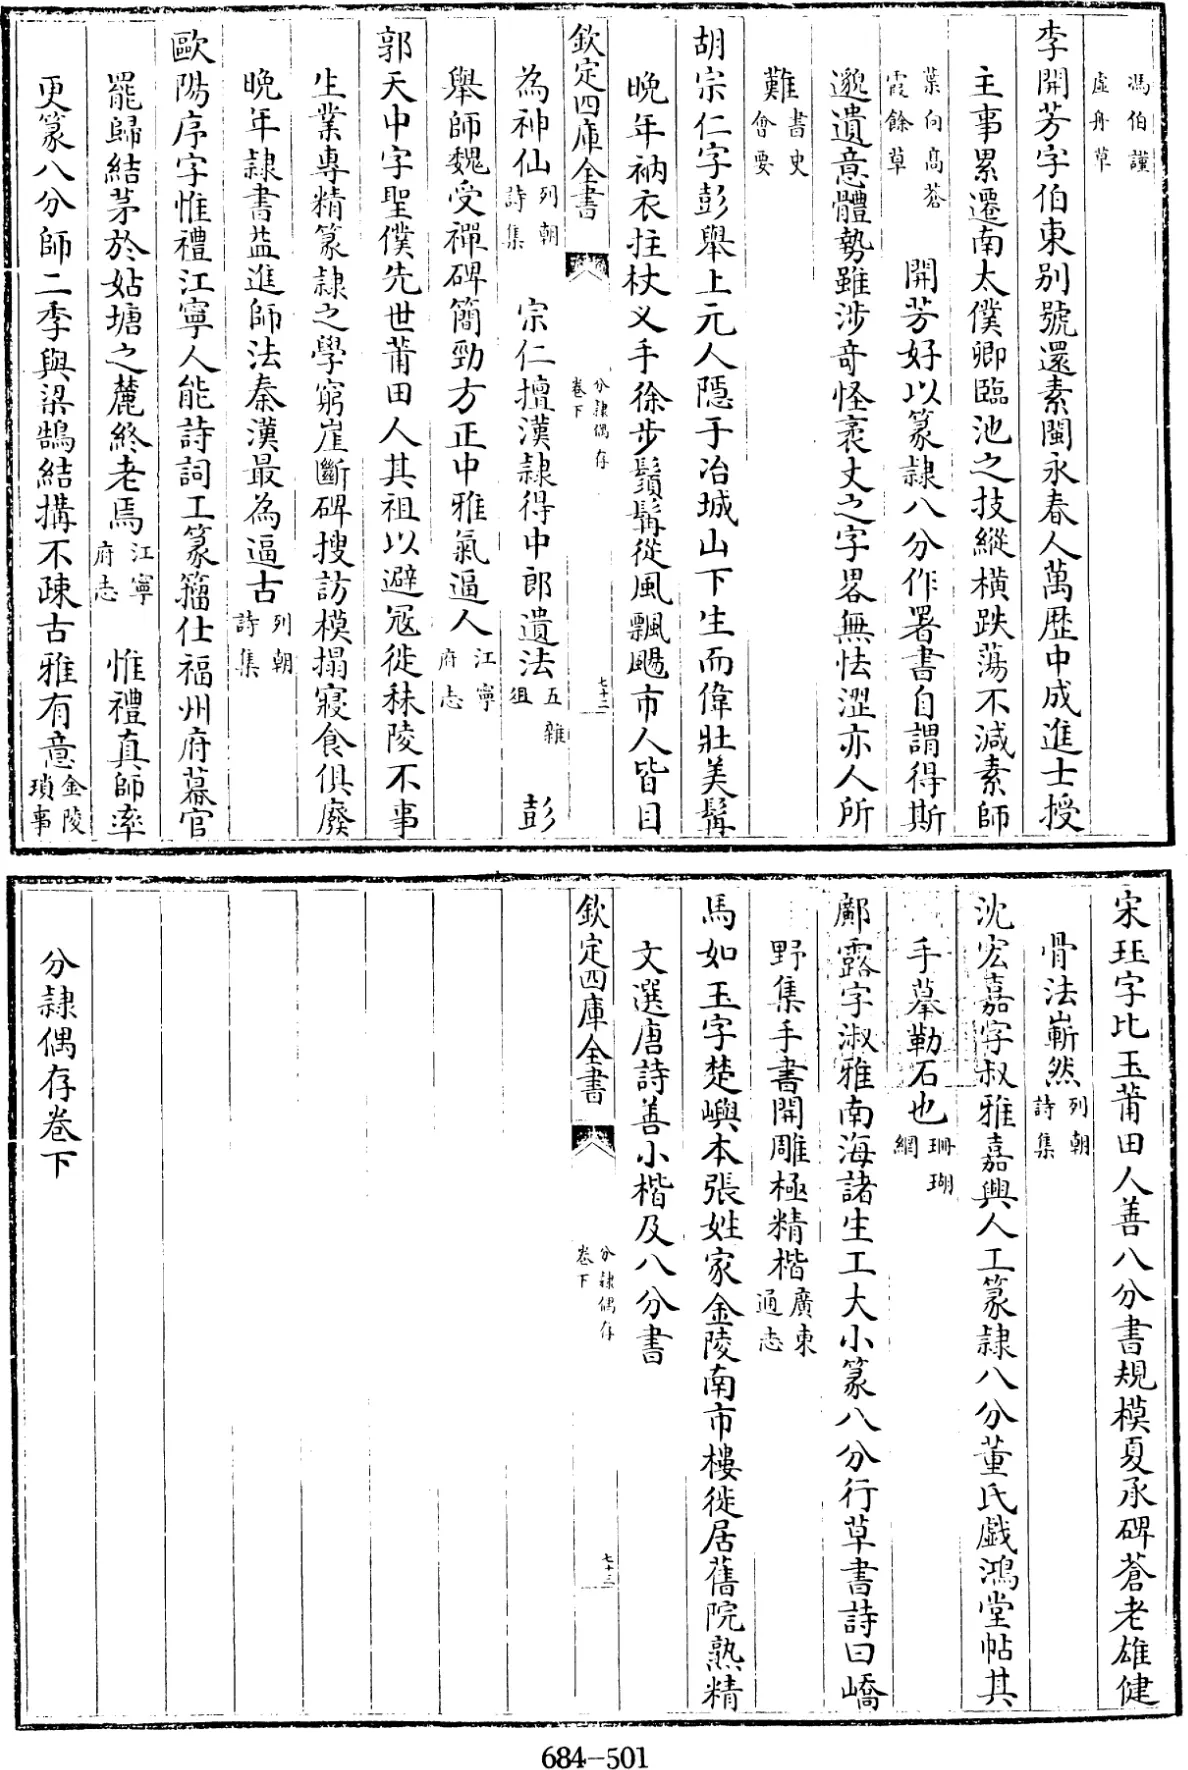 馮伯謹虛舟草
李開芳字伯東别號還素閩永春人萬歴中成進士授
主事累遷南太僕卿臨池之技縱橫跌蕩不減素師
葉向高蒼霞餘草 開芳好以篆隸八分作署書自謂得斯
邈遺意體勢雖涉奇怪袤丈之字畧無怯澀亦人所
難書史會要
胡宗仁字彭舉上元人隱于冶城山下生而偉壯美髯
晩年衲衣拄杖义手徐步鬚髯從風飄颺市人皆目
欽定四庫全書 分隸偶存卷下 七十二
為神仙列朝詩集 宗仁擅漢隸得中郎遺法五雜俎 彭
舉師魏受禪碑簡勁方正中雅氣逼人江寧府志
郭天中字聖僕先世莆田人其祖以避冦徙秣陵不事
生業專精篆隸之學窮崖斷碑搜訪模搨寢食俱廢
晩年隸書益進師法秦漢最為逼古列朝詩集
歐陽序字惟禮江寧人能詩詞工篆籀仕福州府幕官
罷歸結茅於姑塘之麓終老焉江寧府志 惟禮真師率
更篆八分師二李與梁鵠結搆不疎古雅有意金陵瑣事
宋珏字比玉莆田人善八分書規模夏承碑蒼老雄健
骨法嶄然列朝詩集
沈宏嘉字叔雅嘉興人工篆隸八分董氏戲鴻堂帖其
手摹勒石也珊瑚網
鄺露字淑雅南海諸生工大小篆八分行草書詩曰嶠
野集手書開雕極精楷廣東通志
馬如玉字楚嶼本張姓家金陵南市樓徙居舊院熟精
文選唐詩善小楷及八分書
欽定四庫全書 分隸偶存卷下 七十三
分隸偶存卷下
684-501